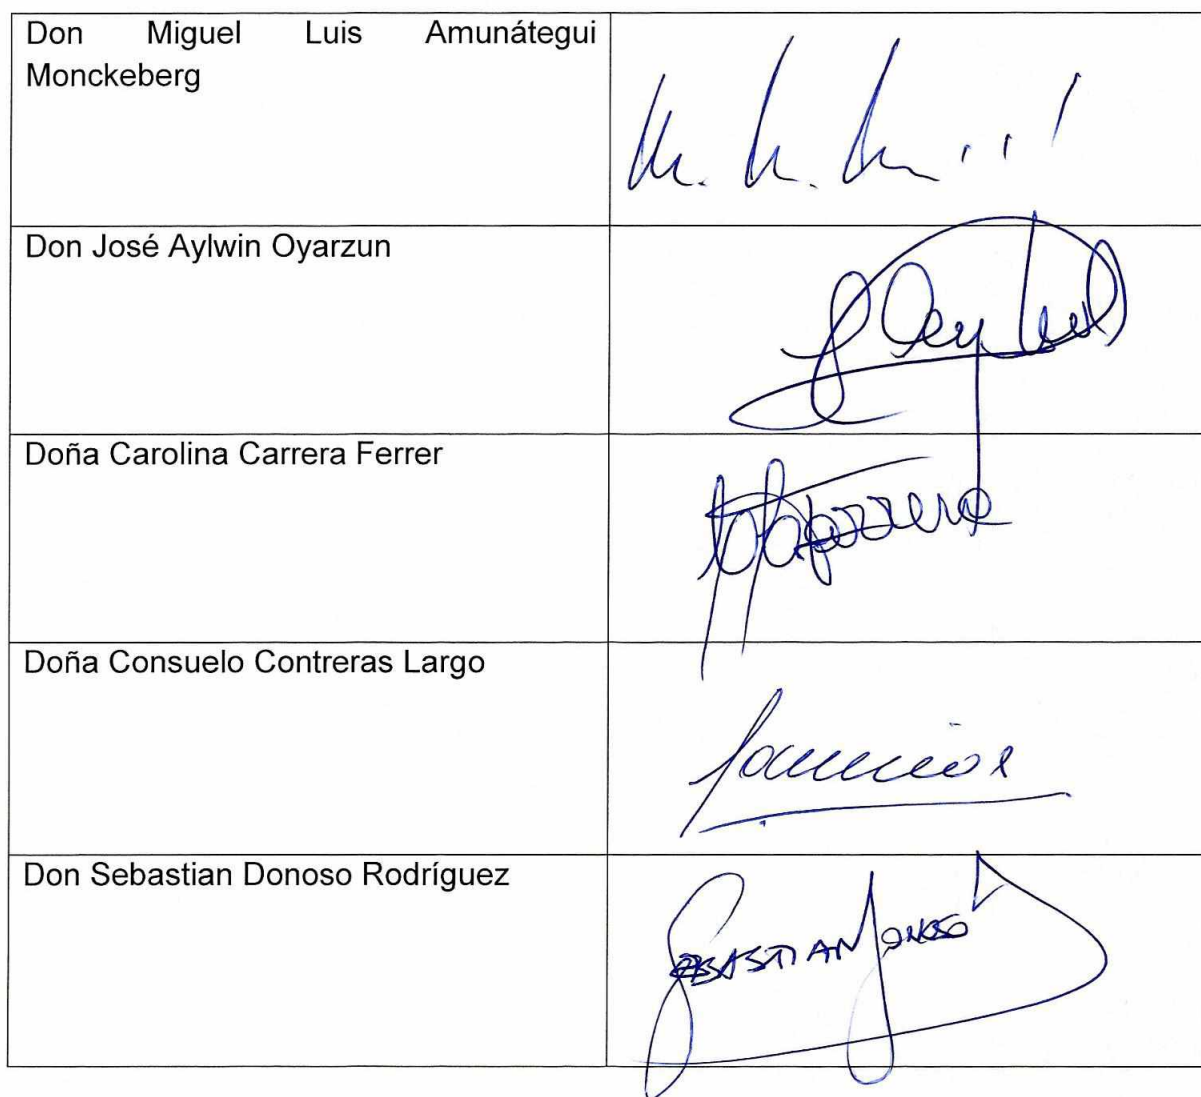 Don Miguel Luis Amunátegui
Monckeberg
Don José Aylwin Oyarzun
Doña Carolina Carrera Ferrer
Doña Consuelo Contreras Largo
Don Sebastian Donoso Rodríguez
SEBASTIAN DONOSO